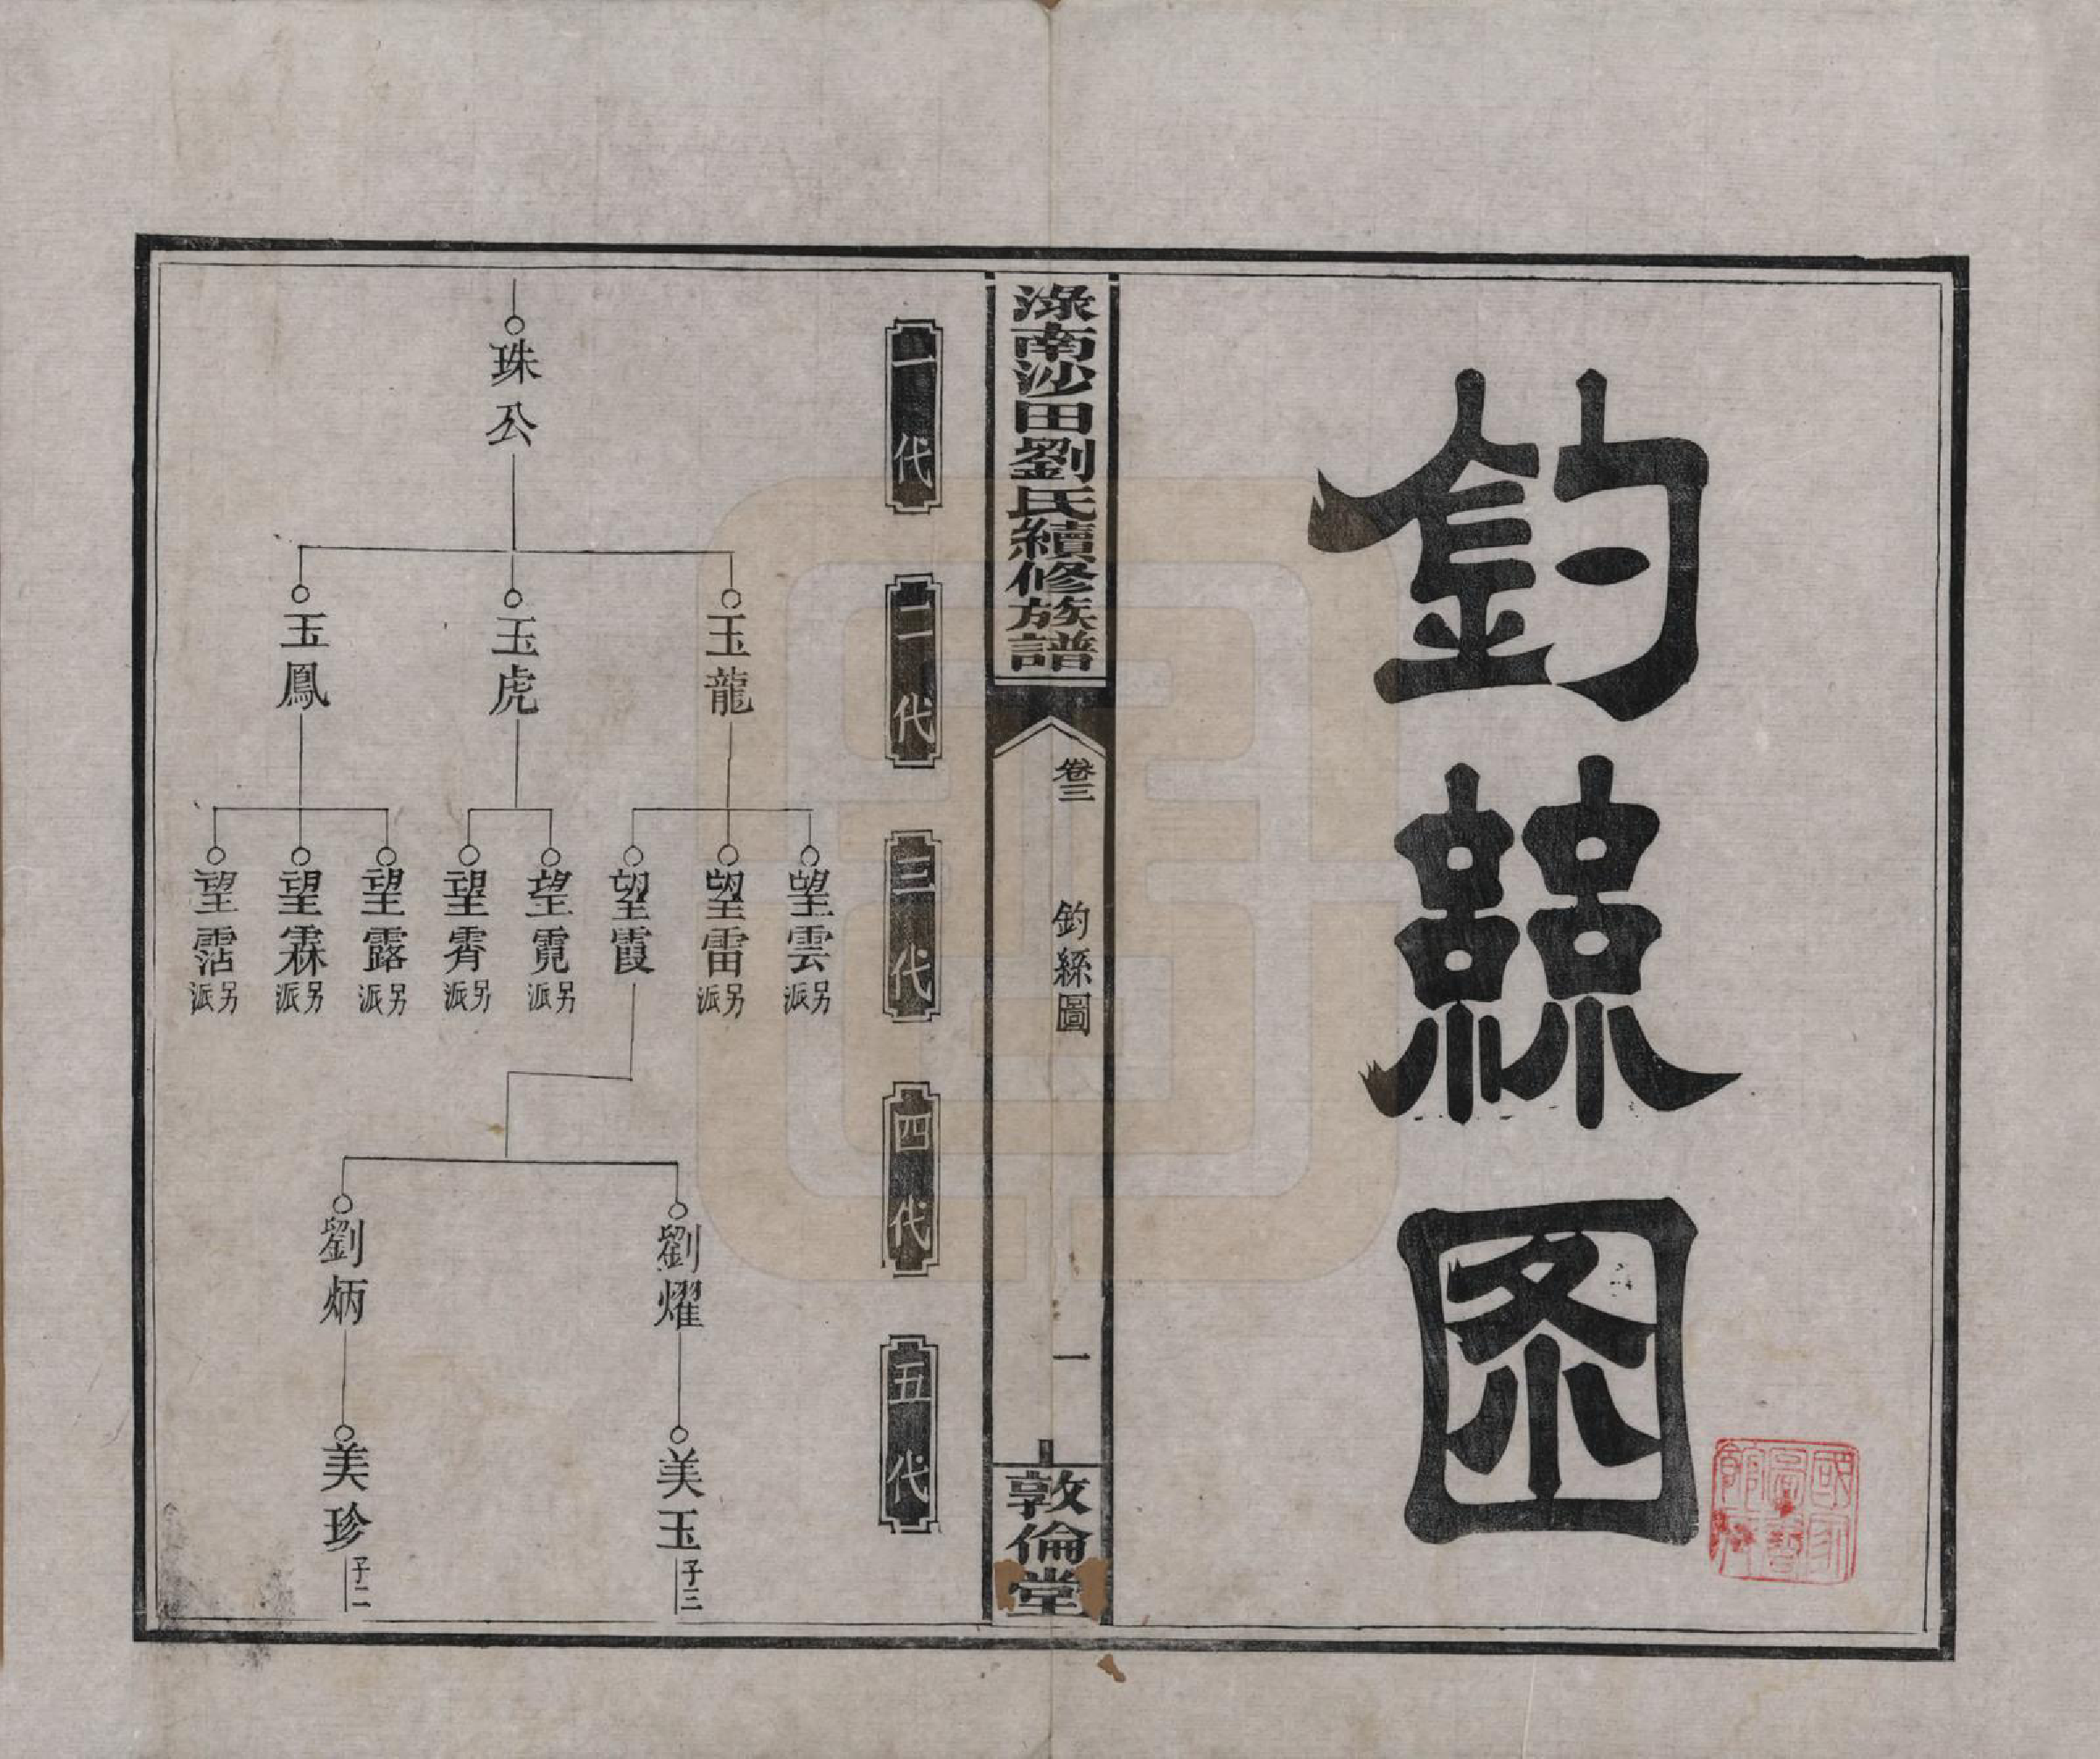 釣絲圖
淥南沙田劉氏續修族譜
卷三
釣絲圖
一
敦倫堂
一代
二代
三代
四代
五代
珠公
玉龍
玉虎
玉鳳
望雲 另派
望雷 另派
望霞
望霓 另派
望霄 另派
望露 另派
望霖 另派
望霑 另派
劉燿
劉炳
美玉 子三
美珍 子二
國家圖書館藏